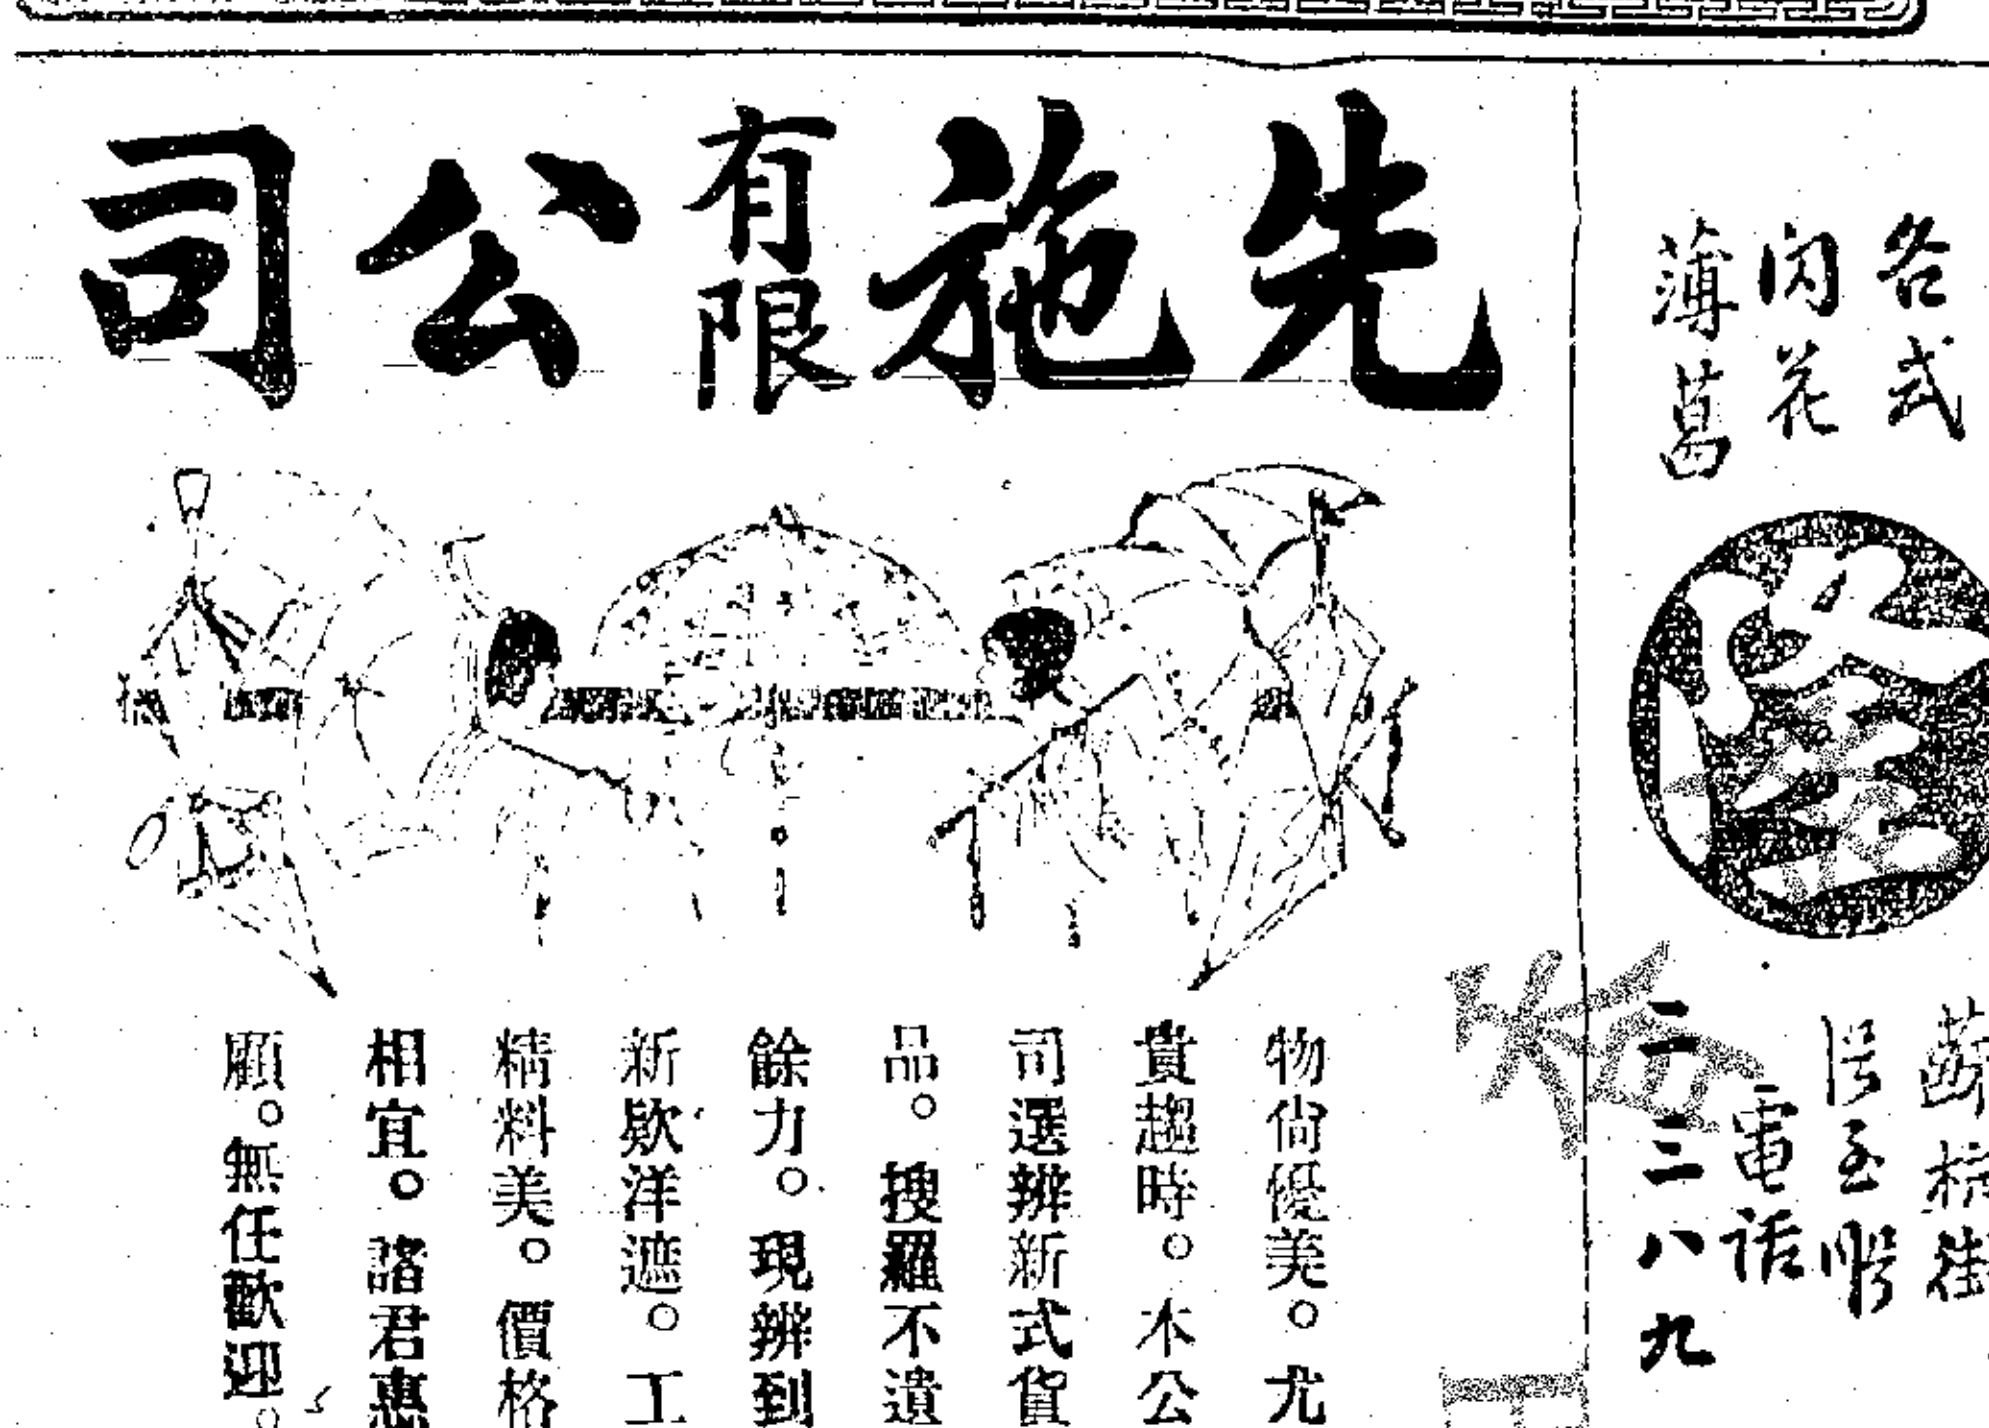 先施有限公司
物尙優美。尤
貴趨時。本公
司選辦新式貨
品。搜羅不遺
餘力。現辦到
新欵洋遮。工
精料美。價格
相宜。諸君惠
顧。無任歡迎。
各式
閃花
薄莒
電話
二三八九